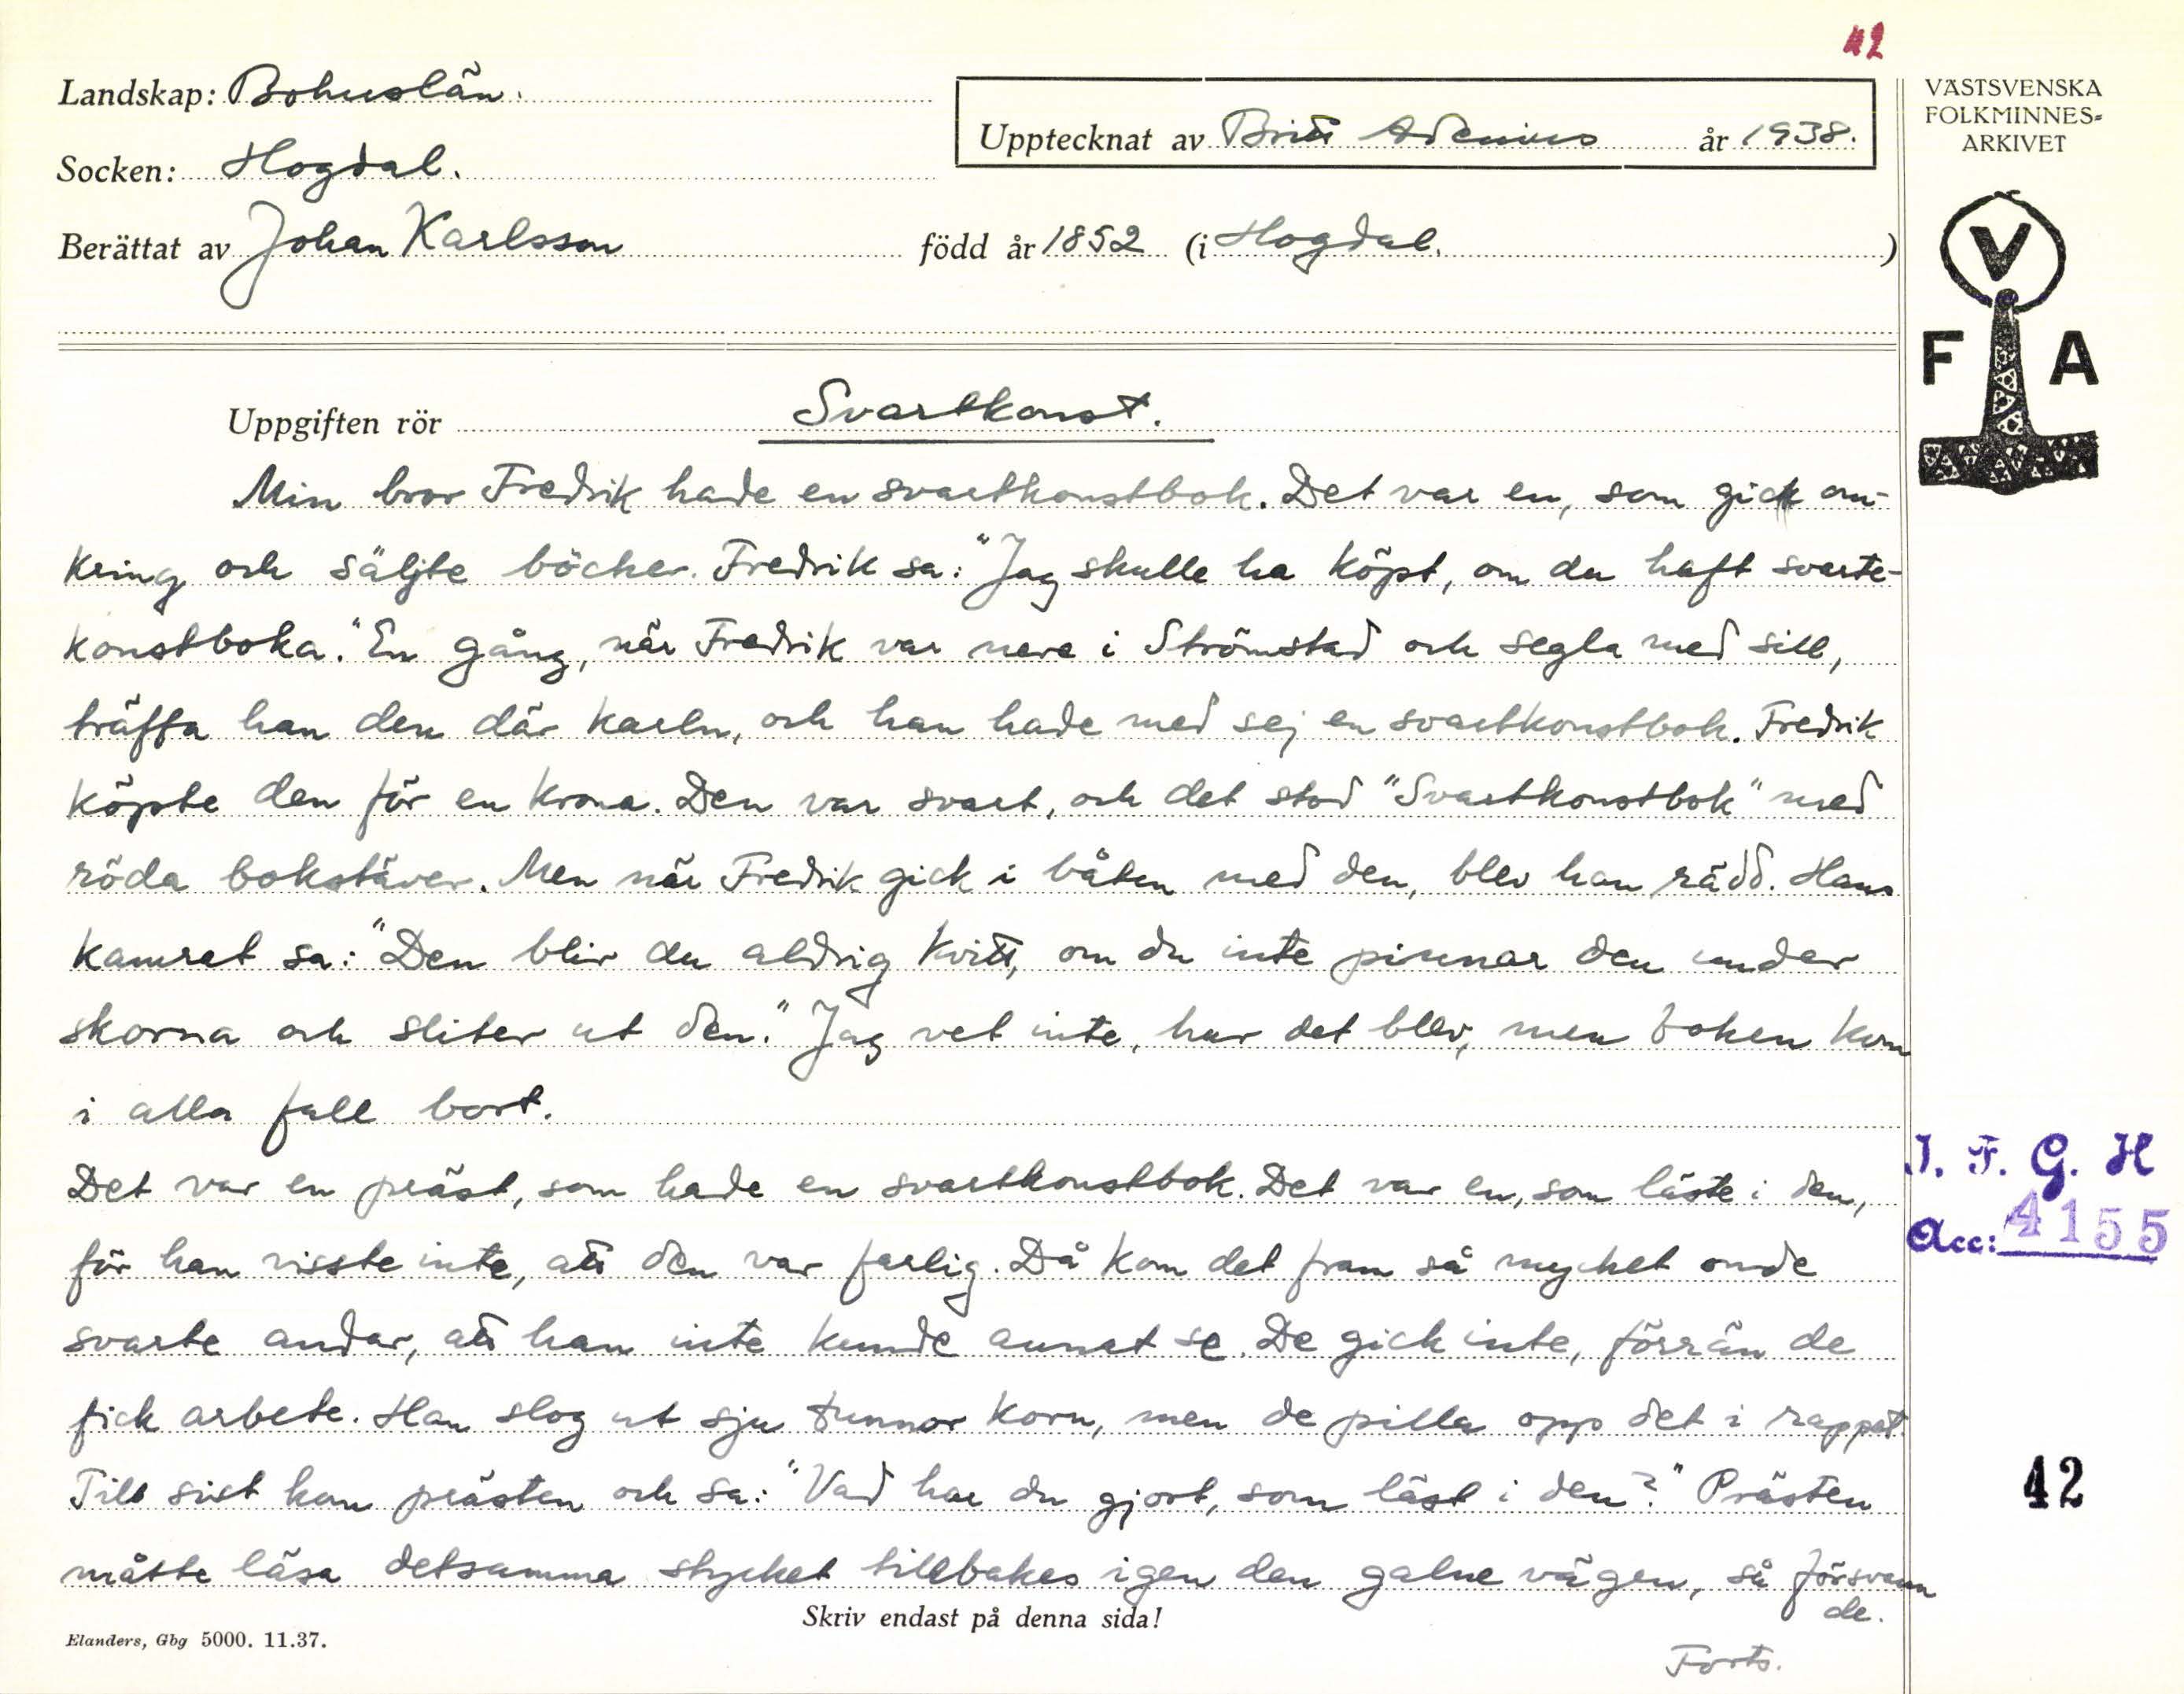 42
Landskap: Bohuslän.
Upptecknat av Britt Adenius år 1938.
VÄSTSVENSKA
FOLKMINNES-
ARKIVET
Socken: Hogdal.
Berättat av Johan Karlsson född år 1852 (i Hogdal.)
V
F A
Uppgiften rör Svartkonst.
Min bror Fredrik hade en svartkonstbok. Det var en, som gick om-
kring och säljte böcker. Fredrik sa: "Jag skulle ha köpt, om du haft svarte-
konstboka." En gång, när Fredrik var nere i Strömstad och segla med sill,
träffa han den där karln, och han hade med sej en svartkonstbok. Fredrik
köpte den för en krona. Den var svart, och det stod "Svartkonstbok" med
röda bokstäver. Men när Fredrik gick i båten med den, blev han rädd. Hans
kamrat sa: "Den blir du aldrig kvitt, om du inte pinnar den under
skorna och sliter ut den." Jag vet inte, hur det blev, men boken kom
i alla fall bort.
Det var en präst, som hade en svartkonstbok. Det var en, som läste i den,
för han visste inte, att den var farlig. Då kom det fram så mycket onde
svarte andar, att han inte kunde annat se. De gick inte, förrän de
fick arbete. Han slog ut sju tunnor korn, men de pilla opp det i rappet.
Till sist kom prästen och sa: "Vad har du gjort, som läst i den?" Prästen
måtte läsa detsamma stycket tillbakes igen den galne vägen, så försvann
de.
I. F. G. H
Acc: 4155
42
Skriv endast på denna sida!
Elanders, Gbg 5000. 11.37.
Forts.